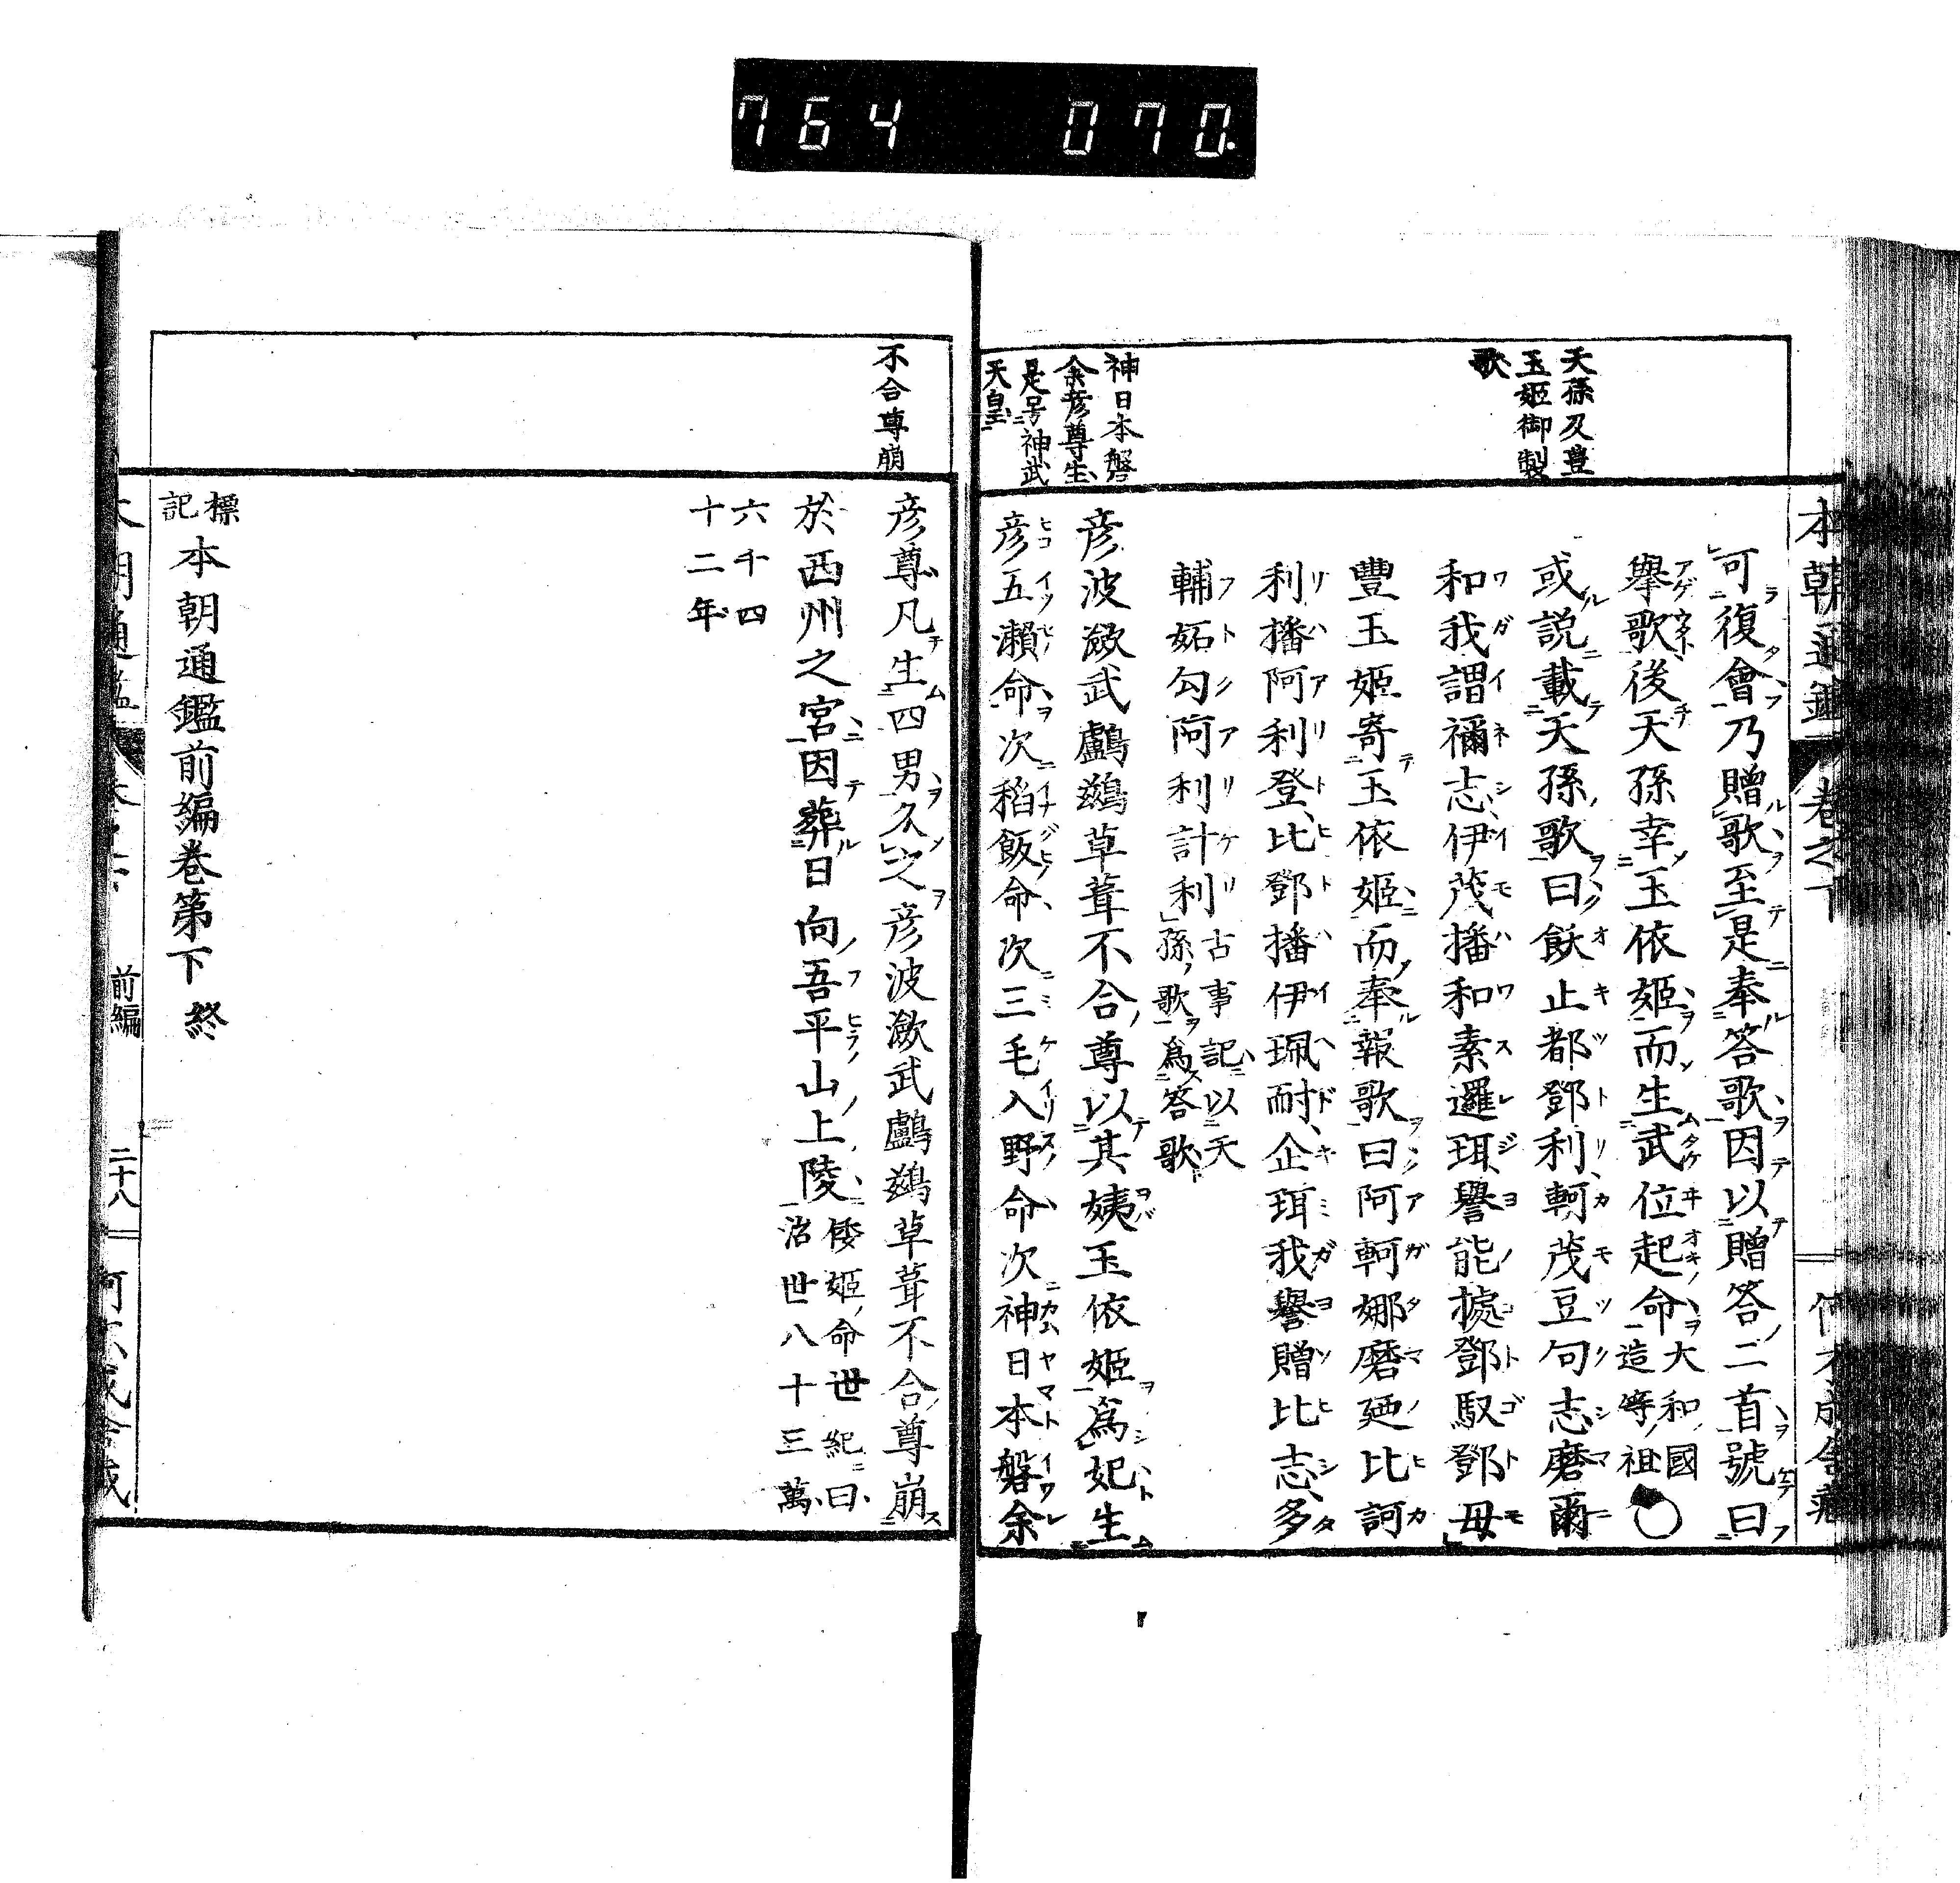 764 070.
本朝通鑑 卷之下
天孫及豊
玉姬御製
歌
神日本磐
余彦尊生
是号神武
天皇
可復會乃贈歌至是奉答歌因以贈答二首號曰
擧歌後天孫幸玉依姬而生武位起命大和國
造等祖○
或説載天孫歌曰飫止都鄧利軻茂豆勾志磨爾
和我謂禰志伊茂播和素邏珥譽能據鄧馭鄧母
豐玉姬寄玉依姬而奉報歌曰阿軻娜磨廼比訶
利播阿利登比鄧播伊珮耐企珥我譽贈比志多
輔妬勾阿利計利古事記以天
孫歌爲答歌
彦波瀲武鸕鷀草葺不合尊以其姨玉依姬爲妃生
彦五瀨命次稻飯命次三毛入野命次神日本磐余
不合尊崩
彦尊凡生四男久之彦波瀲武鸕鷀草葺不合尊崩
於西州之宮因葬日向吾平山上陵倭姬命世紀曰
治世八十三萬
六千四
十二年
標記 本朝通鑑前編卷第下 終
前編 二十八